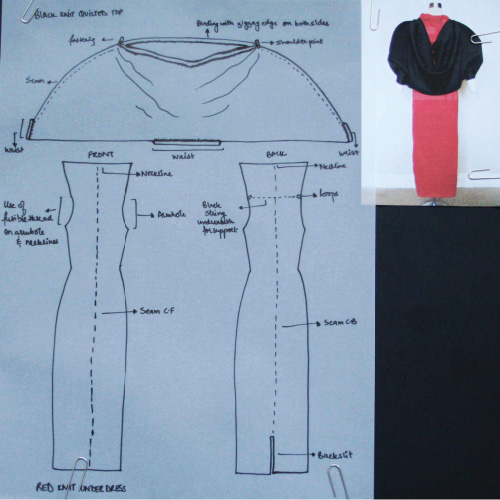 BLACK KNIT QUILTED TOP
Binding with zigzag edge on both sides
fastening
shoulder point
Seam
Waist
Waist
Waist
FRONT
BACK
Neckline
Neckline
Use of
fusible thread
on armhole
& necklines
Armhole
Loops
Black
String
underneath
for support
Seam C.F
Seam C.B
Backslit
RED KNIT UNDERDRESS